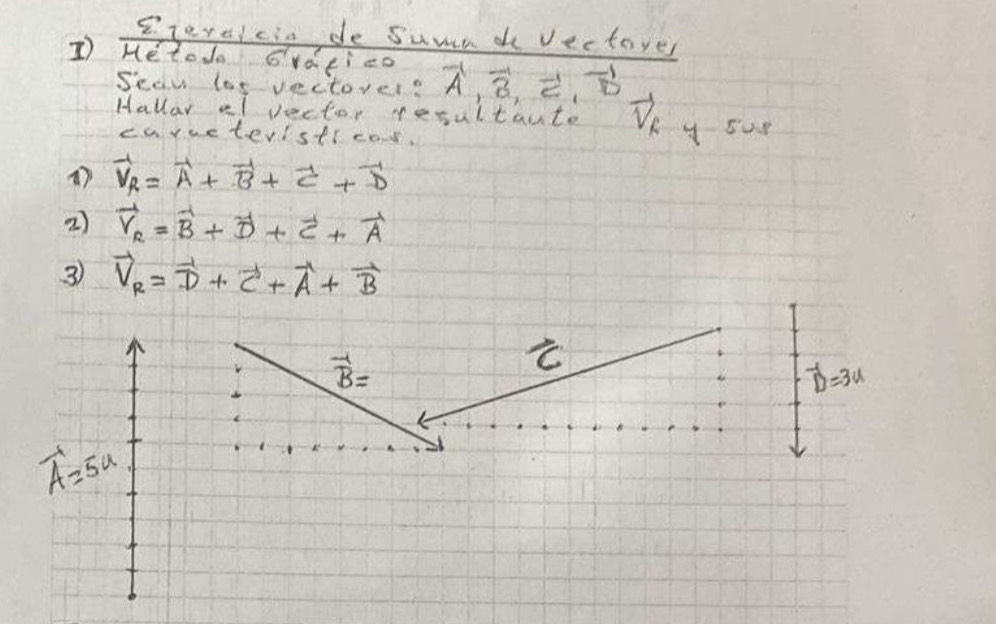 Ejercicio de Suma de Vectores
I) Método Gráfico
Sean los vectores: A⃗, B⃗, C⃗, D⃗
Hallar el vector resultante V⃗R y sus
características.
1) V⃗R = A⃗ + B⃗ + C⃗ + D⃗
2) V⃗R = B⃗ + D⃗ + C⃗ + A⃗
3) V⃗R = D⃗ + C⃗ + A⃗ + B⃗
B⃗=
C⃗
D⃗=3u
A⃗=5u